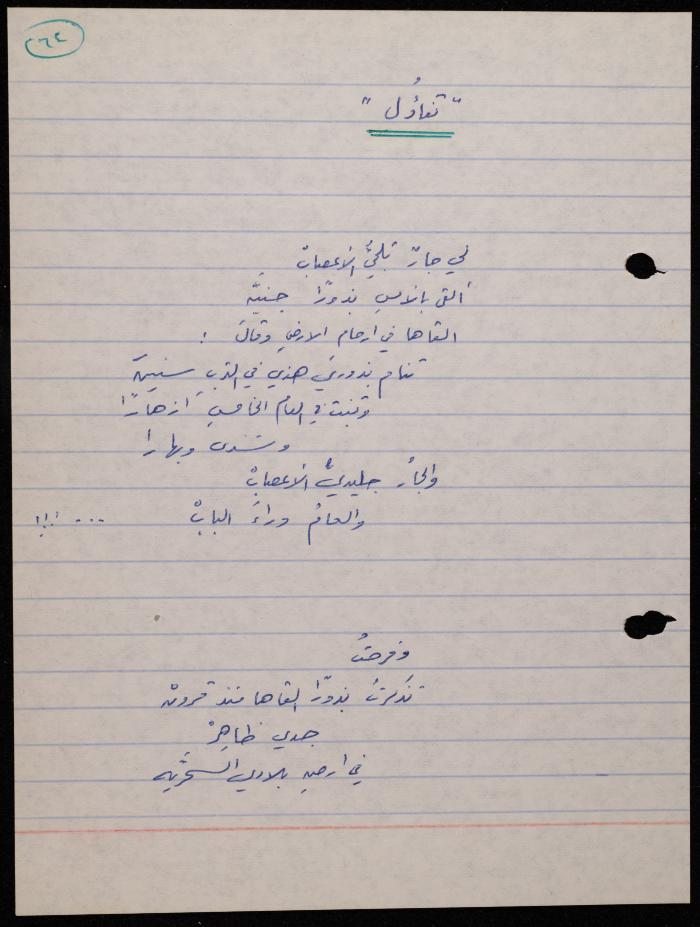 ٦٤
" تفاؤُل "
لي جارٌ ثلجيُّ الأعصابْ
ألقى بالأمسِ بذورًا جنيَّه
القاها في ارحام الارضِ وقالَ :
تنام بذوري هذي في التربِ سنينَ
وتنبت في العام الخامسِ ازهارًا
وشذى وبهارا
والجارُ جليديُّ الأعصابْ
والعامُ وراءَ البابْ . . . !!
وفرحتُ
تذكرتُ بذورًا القاها منذ قرونْ
جدي ظاهِرْ
في ارضِ بلادي السحْريَّه